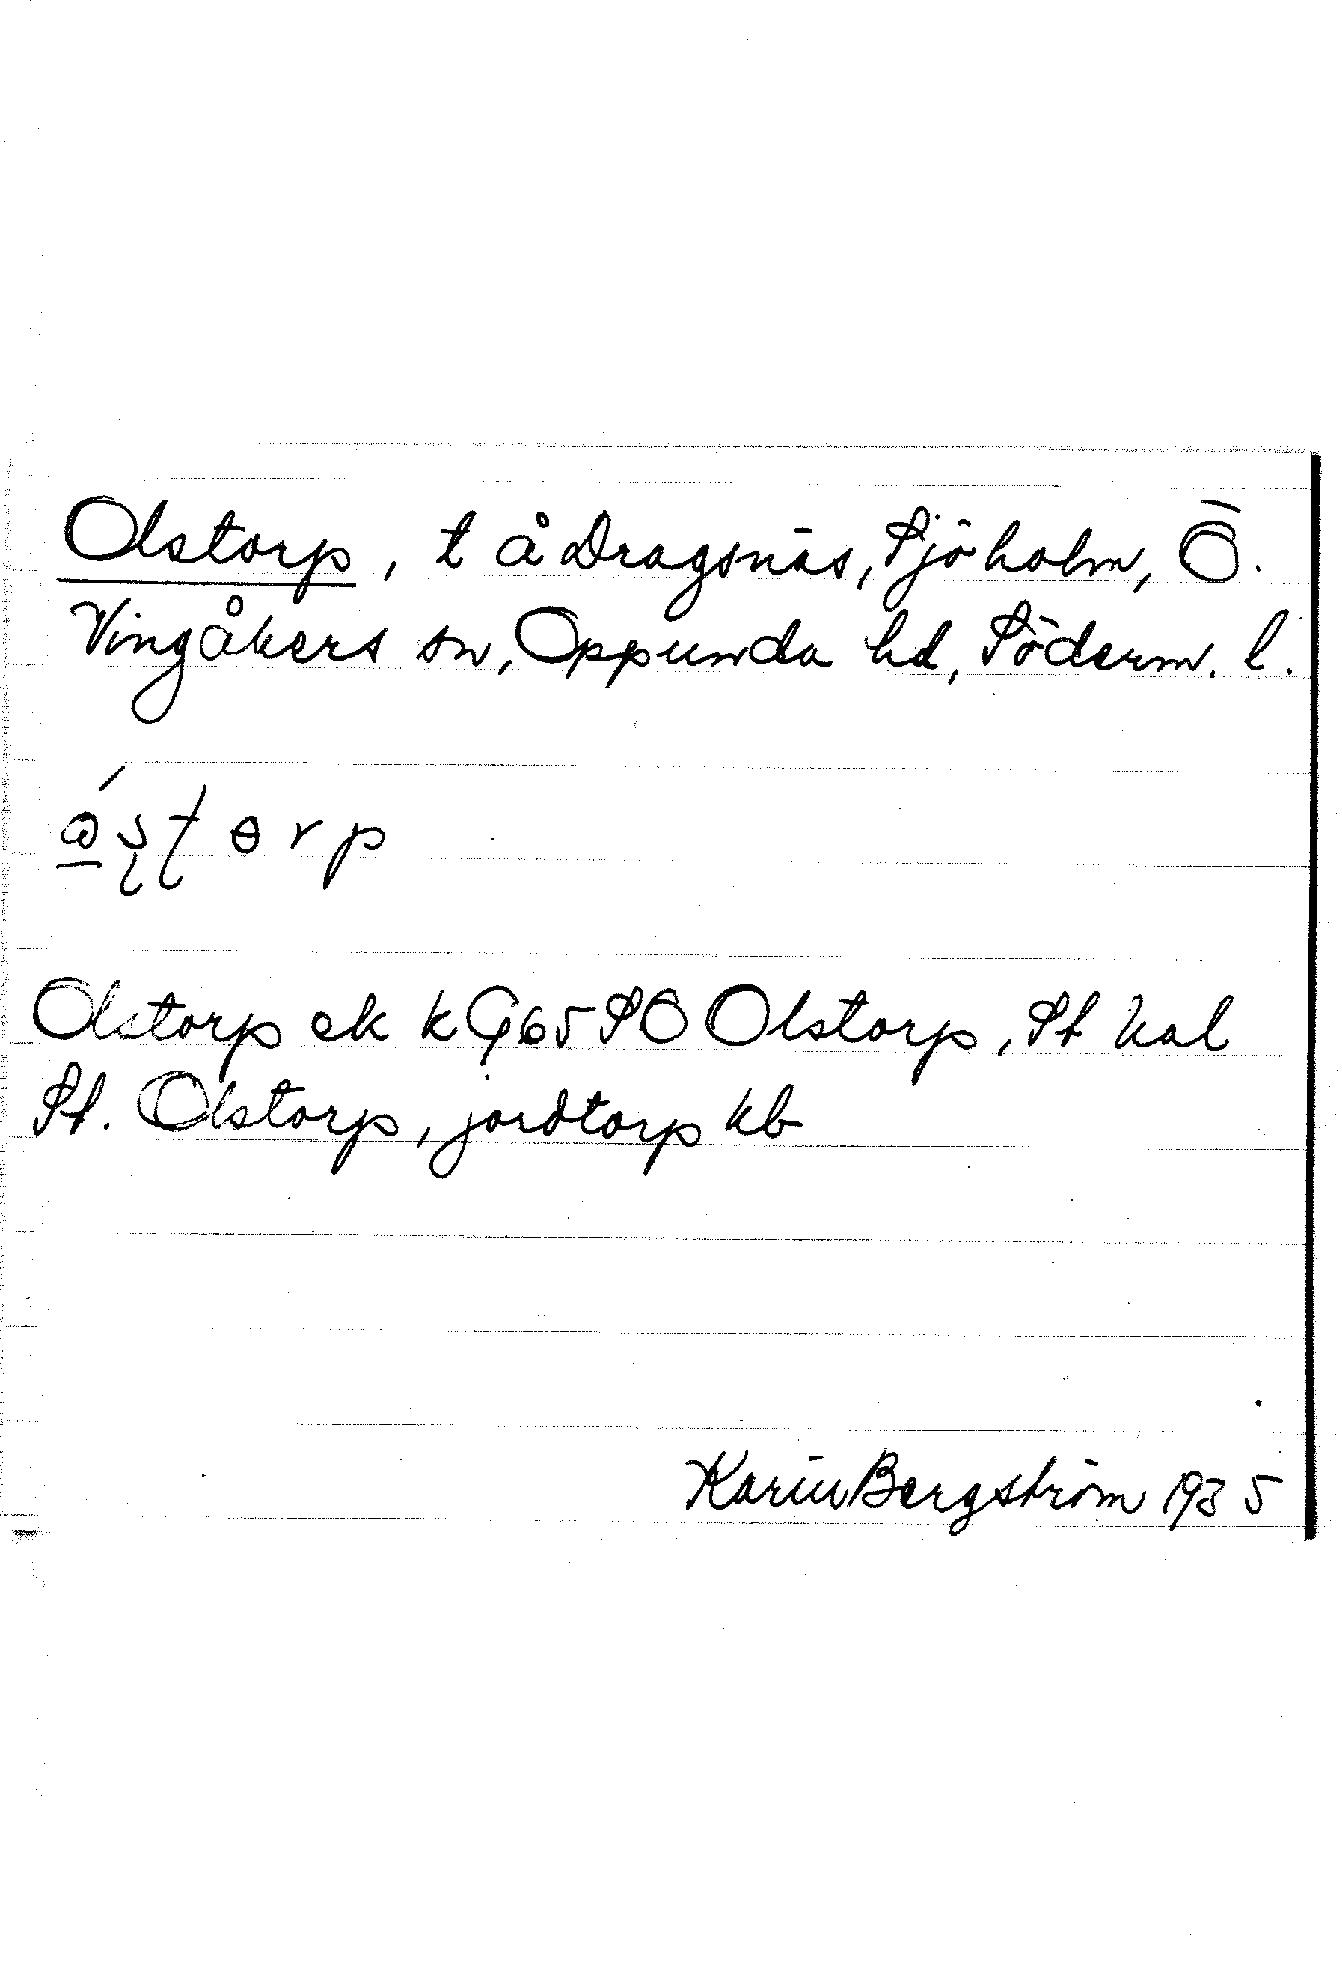 Olstorp, t å Dragsnäs, Sjöholm, Ö.
Vingåkers sn, Oppunda hd, Söderm. l.
Olstorp ek k G65 SÖ Olstorp, St kal
St. Olstorp, jordtorp kb
Karin Bergström 1935